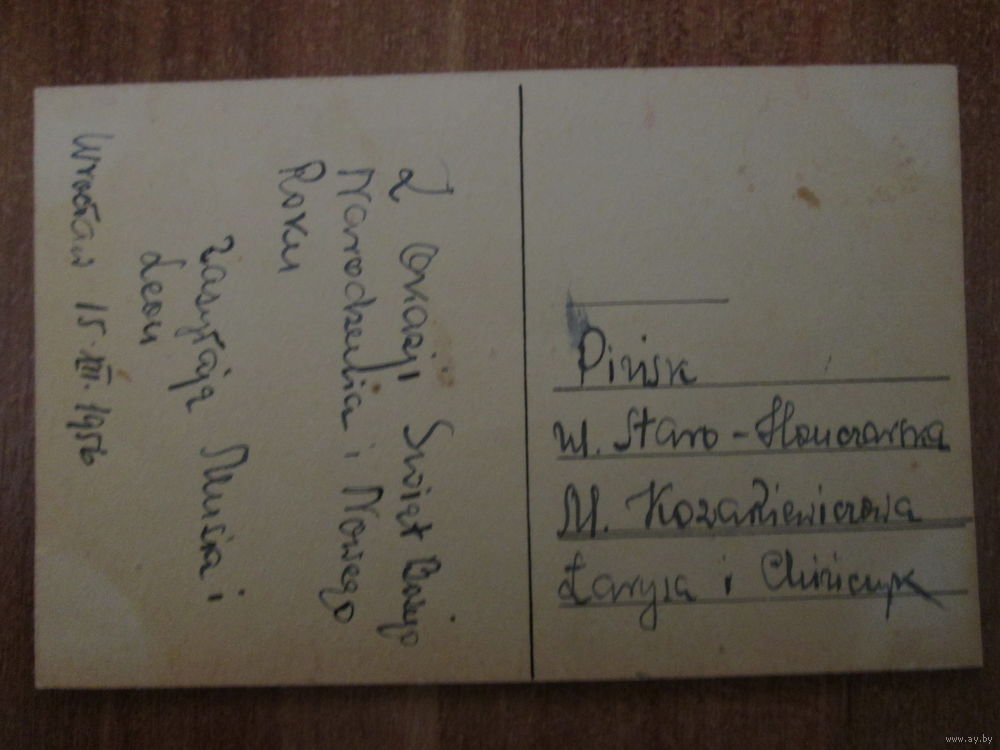 Z Okazji Swiąt Bożego
Narodzenia i Nowego
Roku
Zasyłają Musia i
Leon
Wrocław 15. XII. 1956
Pińsk
ul. Staro-Honczarska
M. Kozakiewiczowa
Łarysa i
www.ay.by